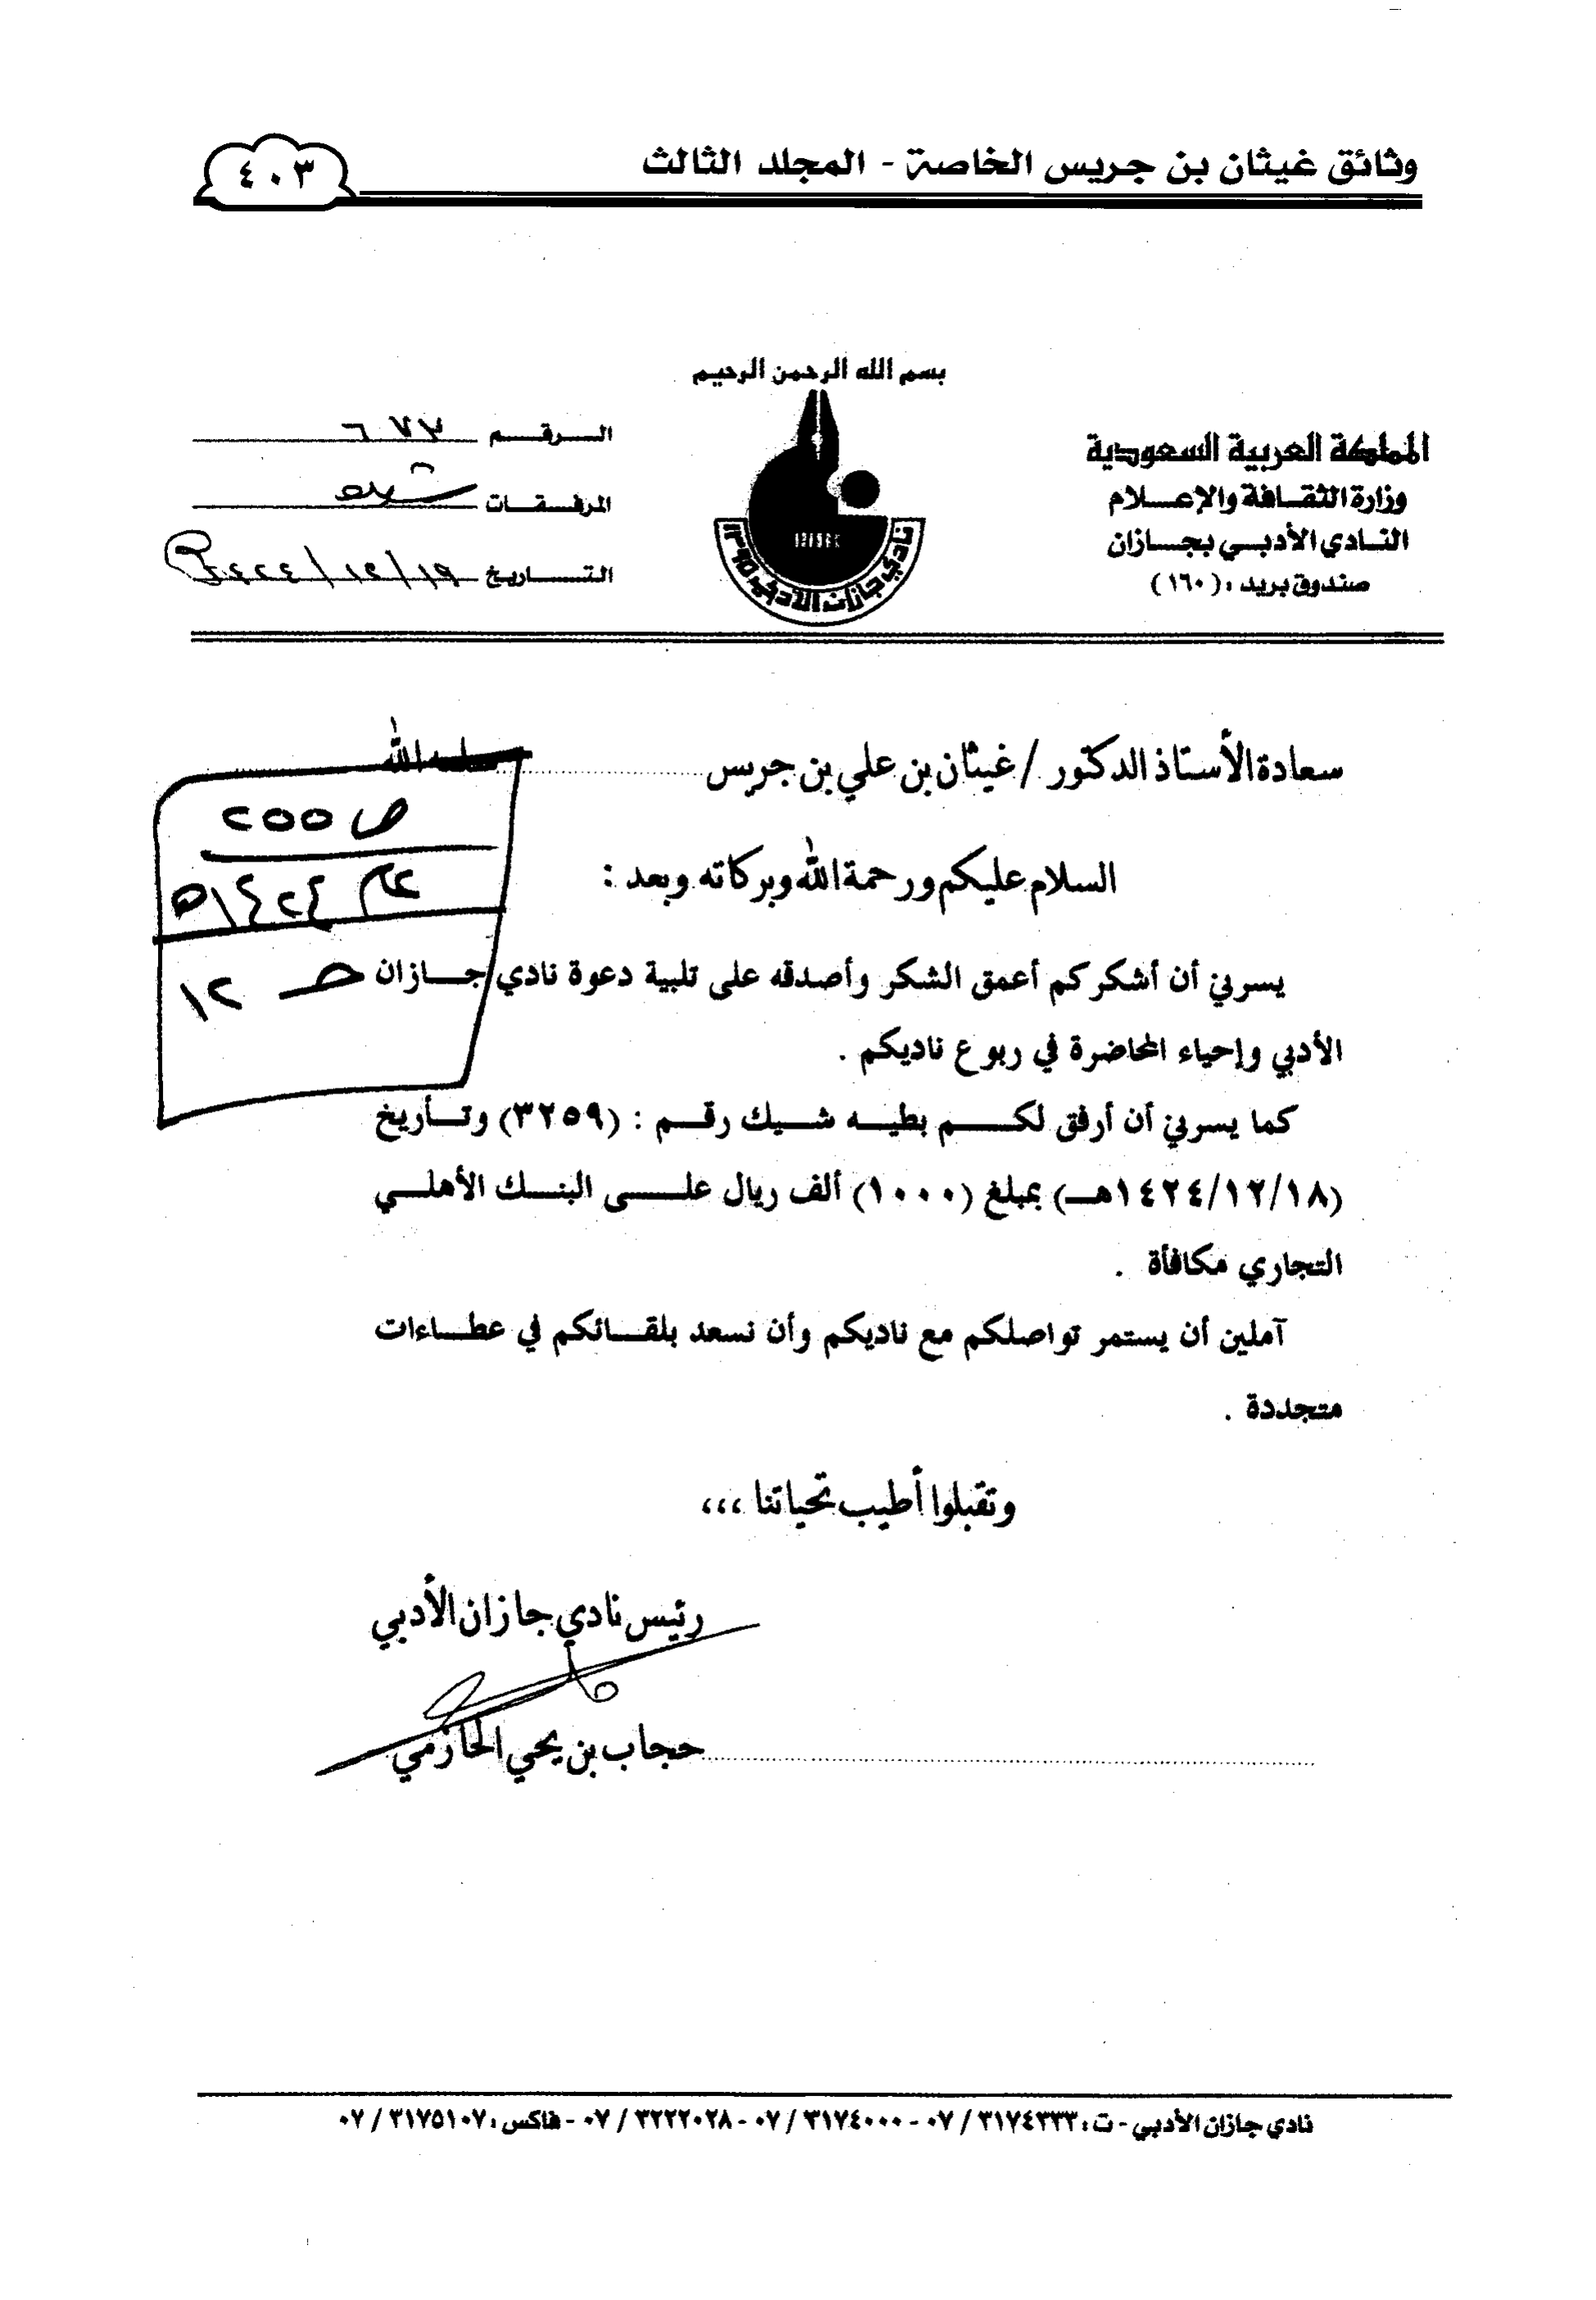 وثائق غيثان بن جريس الخاصة - المجلد الثالث
٤٠٣
بسم الله الرحمن الرحيم
المملكة العربية السعودية
وزارة الثقافة والإعلام
النادي الأدبي بجازان
صندوق بريد : (١٦٠)
نادي جازان الأدبي ١٣٩٥
الرقم ٦٧٣
المرفقات شيك
التاريخ ١٤٢٤/١٢/١٩هـ
سعادة الأستاذ الدكتور / غيثان بن علي بن جريس سلمه الله
ص ٢٥٥
١٤٢٤هـ
١٢
السلام عليكم ورحمة الله وبركاته وبعد :
يسرني أن أشكركم أعمق الشكر وأصدقه على تلبية دعوة نادي جازان
الأدبي وإحياء المحاضرة في ربوع ناديكم .
كما يسرني أن أرفق لكم بطيه شيك رقم : (٣٢٥٩) وتأريخ
(١٤٢٤/١٢/١٨هـ) بمبلغ (١٠٠٠) ألف ريال على البنك الأهلي
التجاري مكافأة .
آملين أن يستمر تواصلكم مع ناديكم وأن نسعد بلقائكم في عطاءات
متجددة .
وتقبلوا أطيب تحياتنا ،،،
رئيس نادي جازان الأدبي
حجاب بن يحي الحازمي
نادي جازان الأدبي - ت : ٣١٧٤٣٣٣ / ٠٧ - ٣١٧٤٠٠٠ / ٠٧ - ٣٢٢٢٠٢٨ / ٠٧ - فاكس : ٣١٧٥١٠٧ / ٠٧